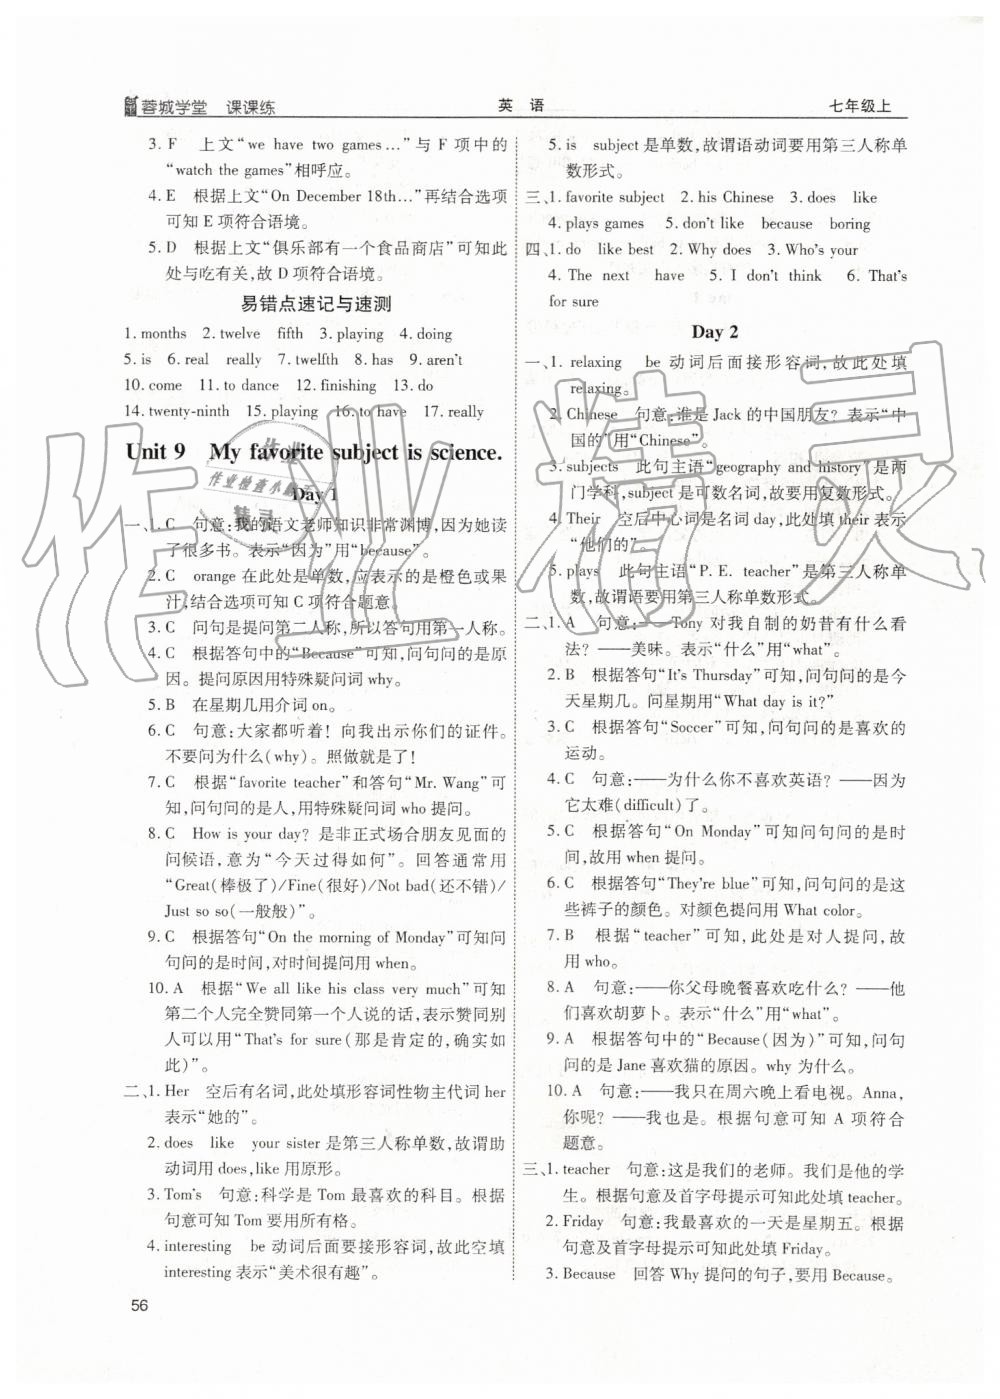 蓉城学堂 课课练
英 语
七年级上
3. F 上文“we have two games…”与 F 项中的
“watch the games”相呼应。
4. E 根据上文“On December 18th…”再结合选项
可知 E 项符合语境。
5. D 根据上文“俱乐部有一个食品商店”可知此
处与吃有关,故 D 项符合语境。
易错点速记与速测
1. months 2. twelve fifth 3. playing 4. doing
5. is 6. real really 7. twelfth 8. has 9. aren't
10. come 11. to dance 12. finishing 13. do
14. twenty-ninth 15. playing 16. to have 17. really
Unit 9 My favorite subject is science.
Day 1
一、1. C 句意:我的语文老师知识非常渊博,因为她读
了很多书。表示“因为”用“because”。
2. C orange 在此处是单数,应表示的是橙色或果
汁,结合选项可知 C 项符合题意。
3. C 问句是提问第二人称,所以答句用第一人称。
4. C 根据答句中的“Because”可知,问句问的是原
因。提问原因用特殊疑问词 why。
5. B 在星期几用介词 on。
6. C 句意:大家都听着! 向我出示你们的证件。
不要问为什么(why)。照做就是了!
7. C 根据“favorite teacher”和答句“Mr. Wang”可
知,问句问的是人,用特殊疑问词 who 提问。
8. C How is your day? 是非正式场合朋友见面的
问候语,意为“今天过得如何”。回答通常用
“Great(棒极了)/Fine(很好)/Not bad(还不错)/
Just so so(一般般)”。
9. C 根据答句“On the morning of Monday”可知问
句问的是时间,对时间提问用 when。
10. A 根据“We all like his class very much”可知
第二个人完全赞同第一个人说的话,表示赞同别
人可以用“That's for sure(那是肯定的,确实如
此)”。
二、1. Her 空后有名词,此处填形容词性物主代词 her
表示“她的”。
2. does like your sister 是第三人称单数,故谓助
动词用 does,like 用原形。
3. Tom's 句意:科学是 Tom 最喜欢的科目。根据
句意可知 Tom 要用所有格。
4. interesting be 动词后面要接形容词,故此空填
interesting 表示“美术很有趣”。
5. is subject 是单数,故谓语动词要用第三人称单
数形式。
三、1. favorite subject 2. his Chinese 3. does like
4. plays games 5. don't like because boring
四、1. do like best 2. Why does 3. Who's your
4. The next have 5. I don't think 6. That's
for sure
Day 2
一、1. relaxing be 动词后面接形容词,故此处填
relaxing。
2. Chinese 句意:谁是 Jack 的中国朋友? 表示“中
国的”用“Chinese”。
3. subjects 此句主语“geography and history”是两
门学科,subject 是可数名词,故要用复数形式。
4. Their 空后中心词是名词 day,此处填 their 表示
“他们的”。
5. plays 此句主语“P. E. teacher”是第三人称单
数,故谓语要用第三人称单数形式。
二、1. A 句意:——Tony 对我自制的奶昔有什么看
法? ——美味。表示“什么”用“what”。
2. B 根据答句“It's Thursday”可知,问句问的是今
天星期几。问星期用“What day is it?”
3. C 根据答句“Soccer”可知,问句问的是喜欢的
运动。
4. C 句意:——为什么你不喜欢英语? ——因为
它太难(difficult)了。
5. C 根据答句“On Monday”可知问句问的是时
间,故用 when 提问。
6. C 根据答句“They're blue”可知,问句问的是这
些裤子的颜色。对颜色提问用 What color。
7. B 根据“teacher”可知,此处是对人提问,故
用 who。
8. A 句意:——你父母晚餐喜欢吃什么? ——他
们喜欢胡萝卜。表示“什么”用“what”。
9. A 根据答句中的“Because(因为)”可知,问句
问的是 Jane 喜欢猫的原因。why 为什么。
10. A 句意:——我只在周六晚上看电视。Anna,
你呢? ——我也是。根据句意可知 A 项符合
题意。
三、1. teacher 句意:这是我们的老师。我们是他的学
生。根据句意及首字母提示可知此处填 teacher。
2. Friday 句意:我最喜欢的一天是星期五。根据
句意及首字母提示可知此处填 Friday。
3. Because 回答 Why 提问的句子,要用 Because。
56
作业精灵
作业
作业检查小助手
精灵